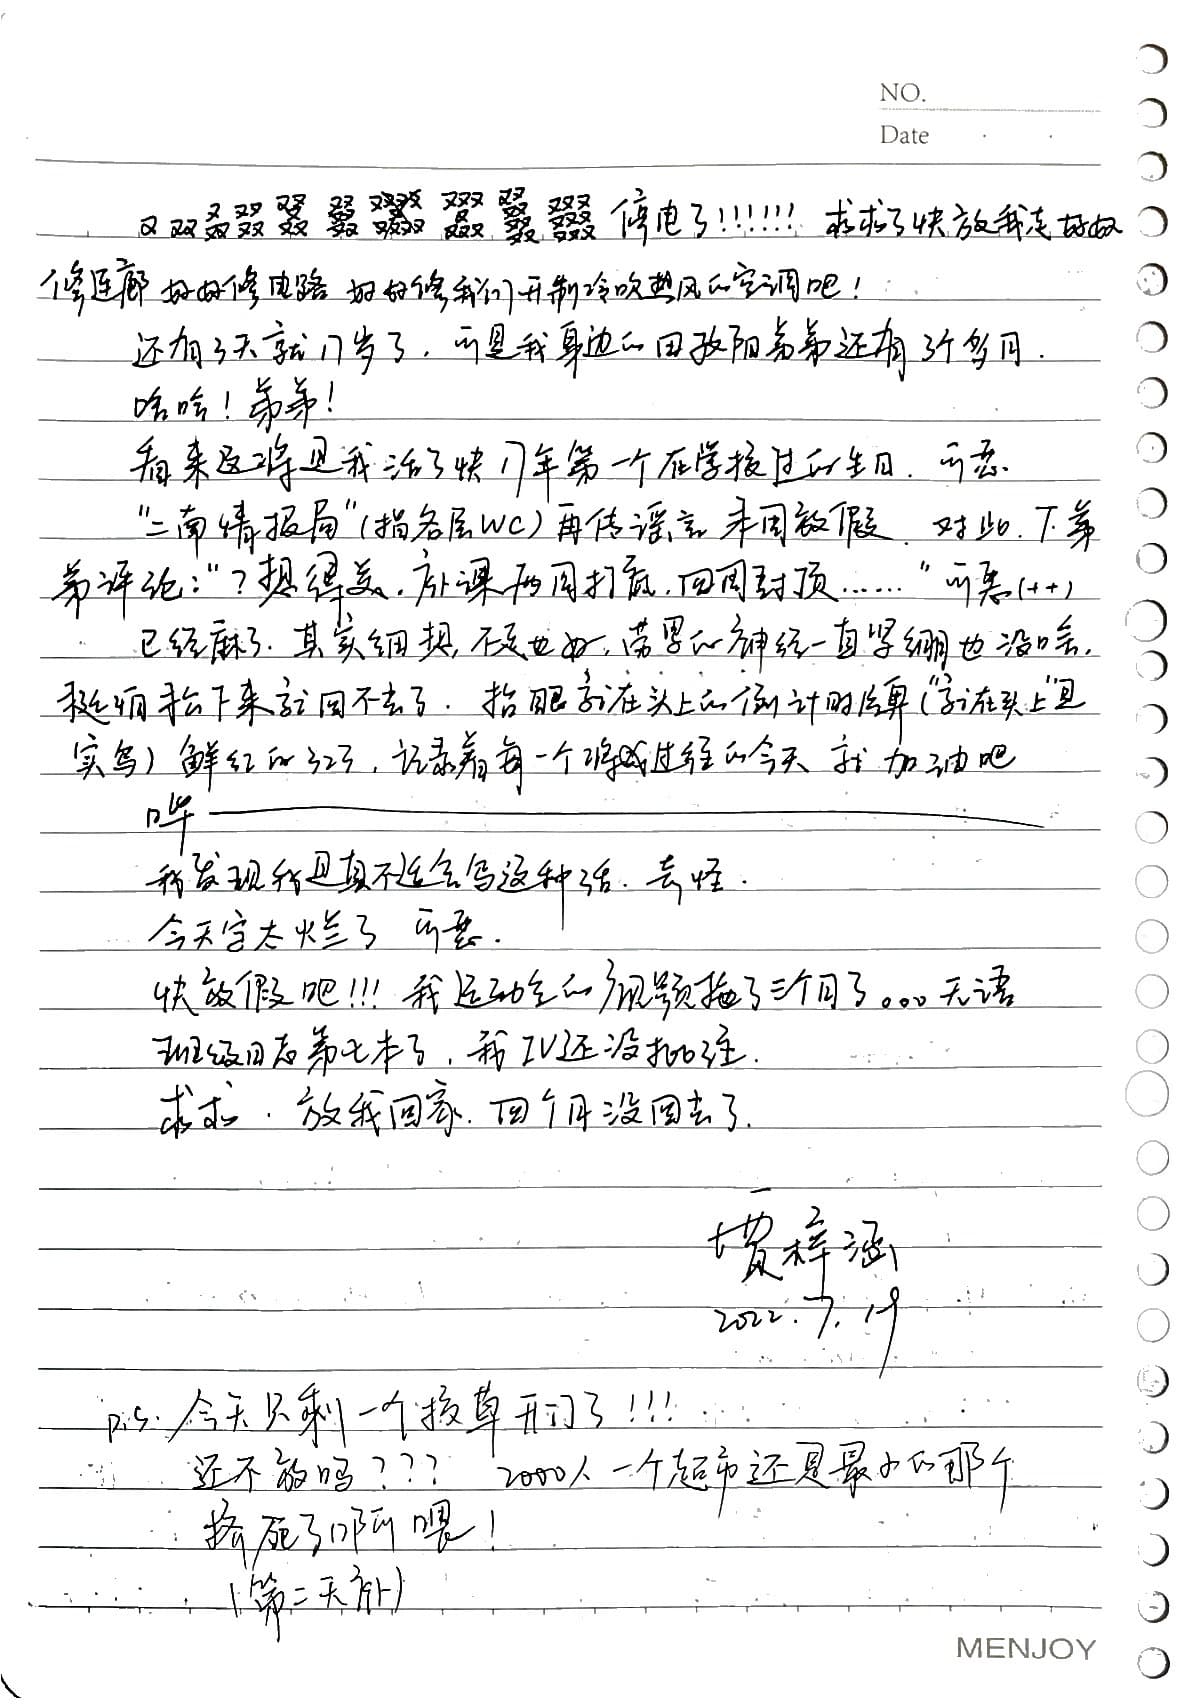 NO.
Date
又双叒叕 停电了!!!!!! 求求了快放我走好好
修连廊 好好修电路 好好修我们开制冷吹热风的空调吧!
还有3天就17岁了，可是我身边的田孜阳弟弟还有3个多月.
哈哈! 弟弟!
看来这将是我活了快17年第一个在学校过的生日. 可恶
"二南情报局"(指各层WC) 再传谣言 本周放假. 对此, T.弟
弟评论: "? 想得美, 补课两周打底, 四周封顶……" 可恶(++)
已经麻了. 其实细想, 不走也好, 带累的神经一直紧绷也没啥,
就怕松下来就回不去了. 抬眼就在头上的倒计时牌("就在头上"是
实写) 鲜红的323, 记录着每一个将成过往的今天 就加油吧
哔
我发现我是真不适合写这种话. 奇怪.
今天字太烂了 可恶.
快放假吧!!! 我运动会的视频拖了三个月了。。。无语
班级日志第七本了, 我IV还没批注.
求求. 放我回家. 四个月没回去了.
贾梓涵
2022.7.19
P.S. 今天只剩一个接草开门了!!!
还不放吗??? 2000人一个超市还是最小的那个
挤死了啊喂!
(第二天补)
MENJOY